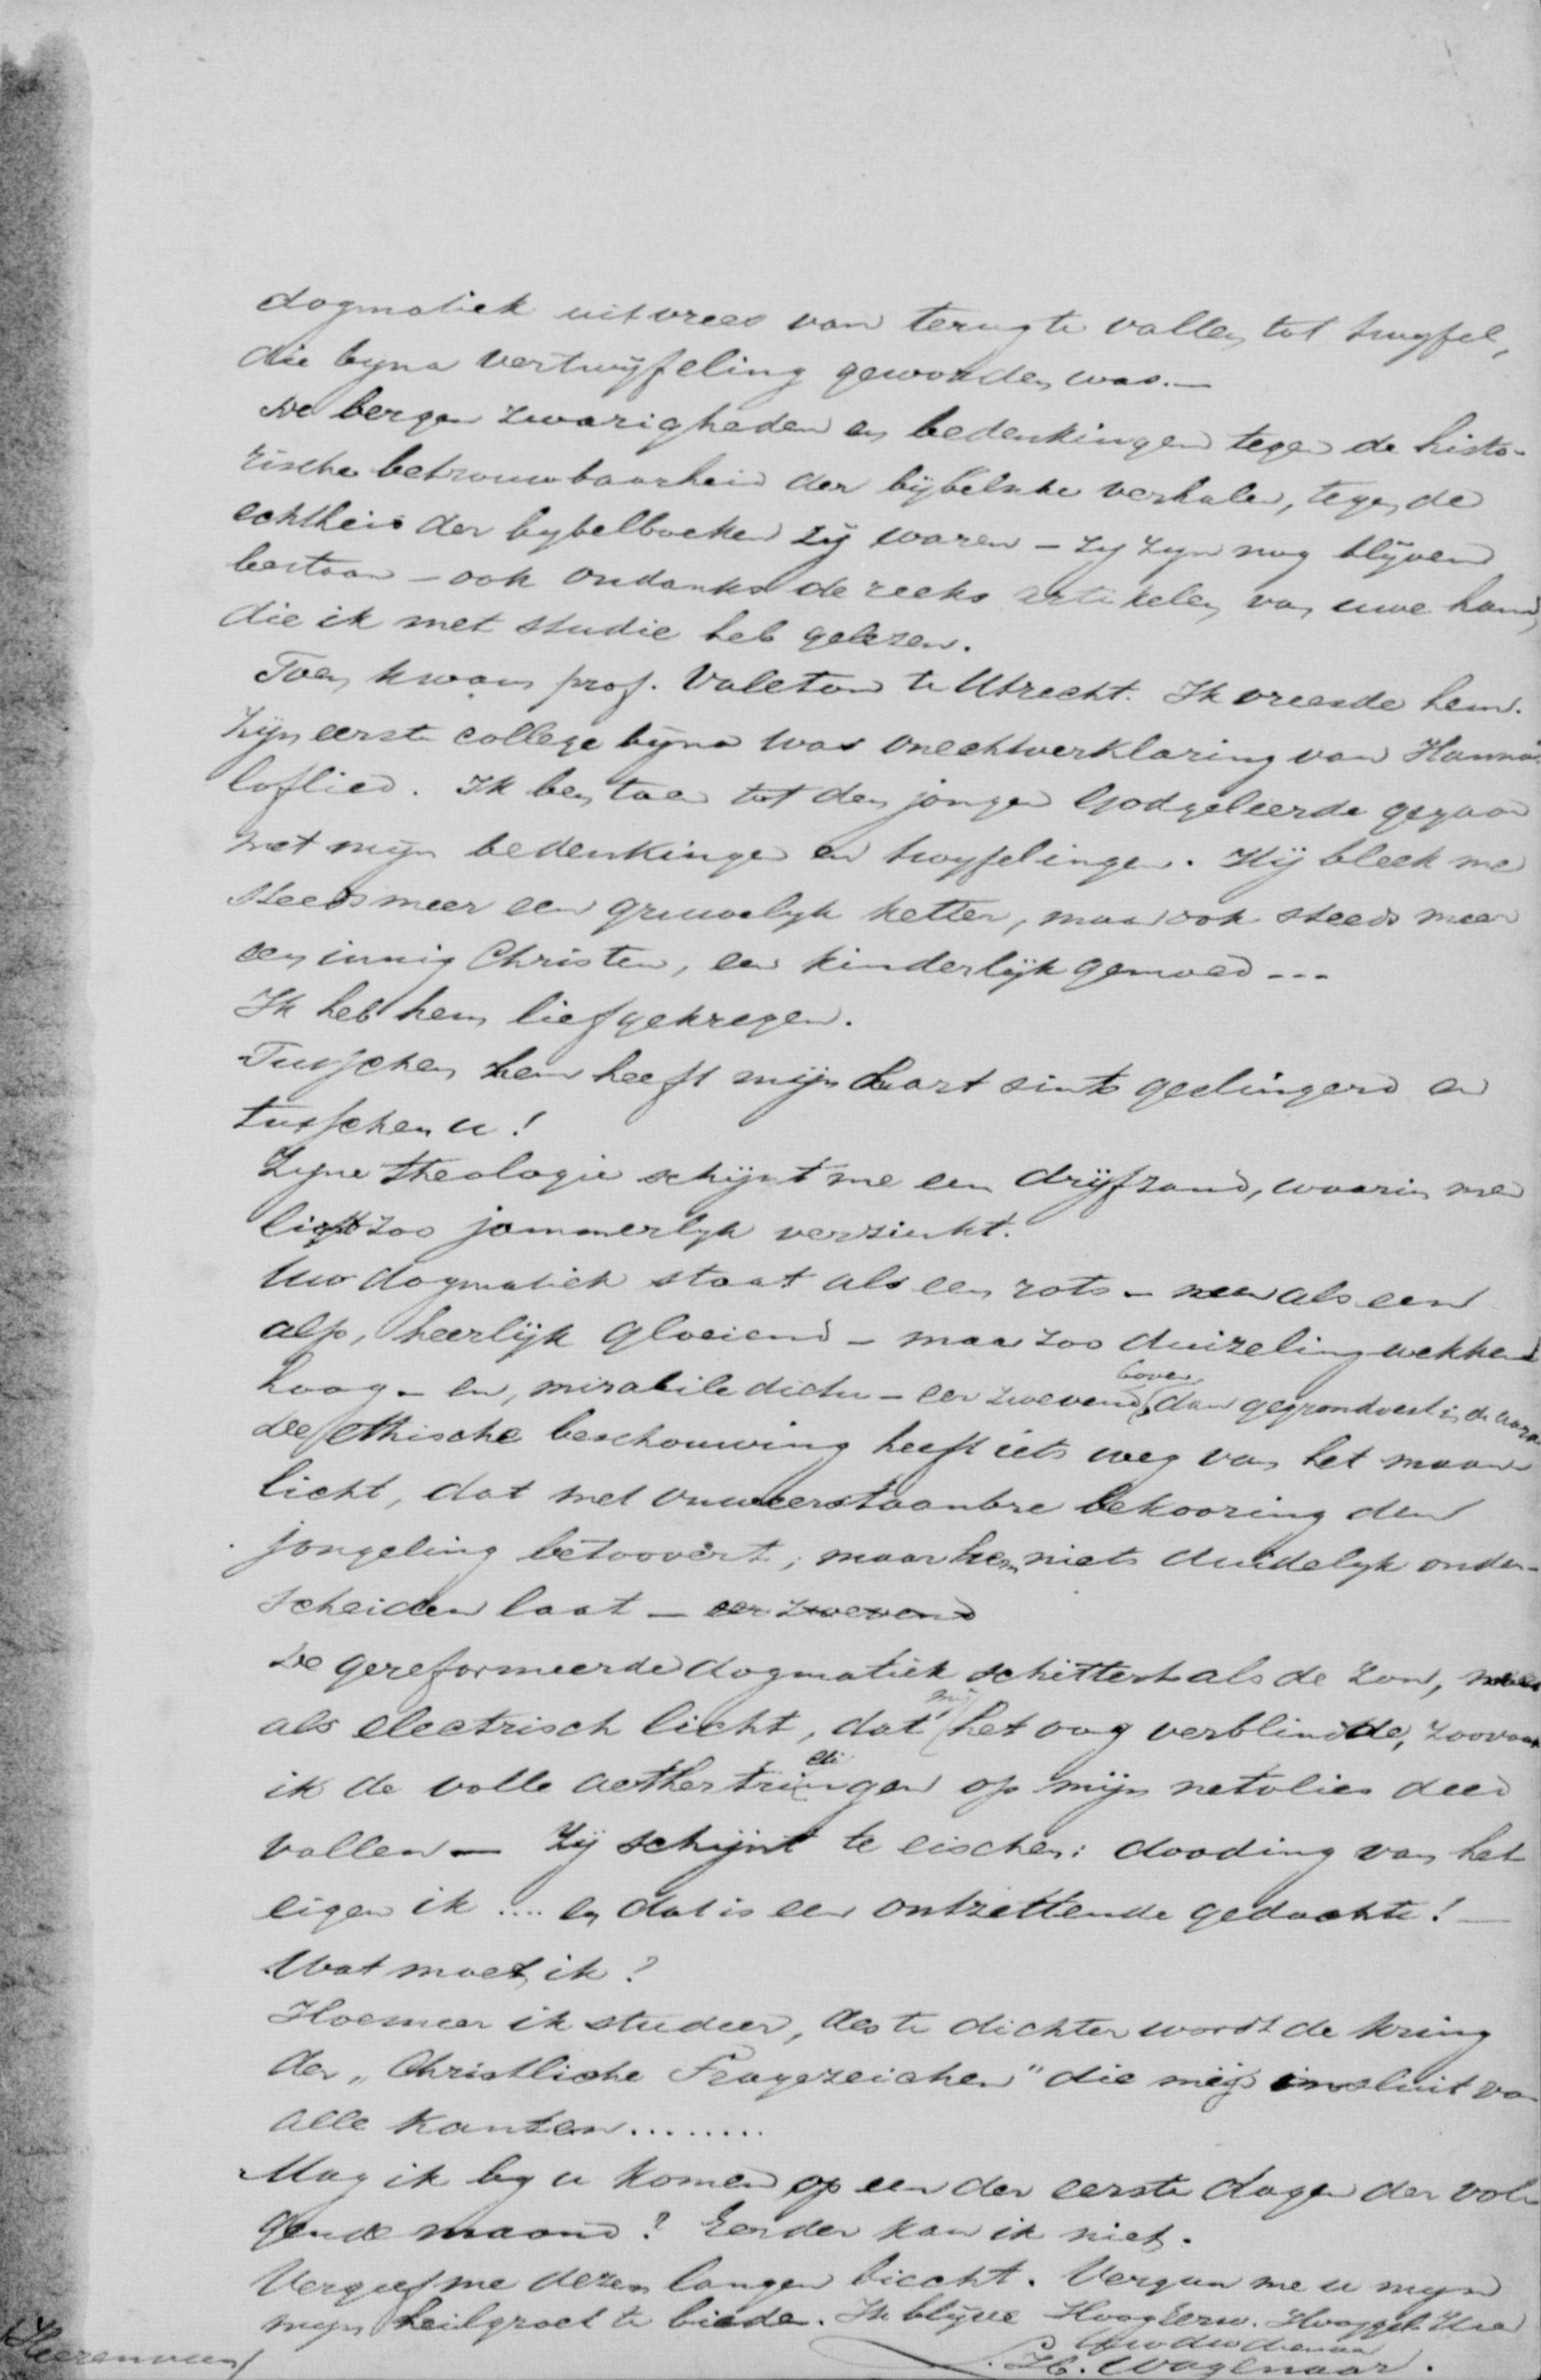 dogmatiek uit vrees van terug te vallen tot twyfel,
die byna vertwijfeling geworden was. —
De bergen zwarigheden en bedenkingen tegen de histo-
rische betrouwbaarheid der bijbelsche verhalen, tegen de
echtheid der bybelboeken zij waren — zy zyn nog blijven
bestaan — ook ondanks de reeks artikelen van uwe hand,
die ik met studie heb gelezen.
Toen kwam prof. Valeton te Utrecht. Ik vreesde hem.
Zijn eerste college bijna was onechtverklaring van Hanna's
loflied. Ik ben toen tot den jongen Godgeleerde gegaan
met mijn bedenkingen en twyfelingen. Hij bleek me
steeds meer een gruwelyk ketter, maar ook steeds meer
een innig Christen, een kinderlijk gemoed ---
Ik heb hem lief gekregen.
Tusschen hem heeft mijn hart sints geslingerd en
tusschen u!
Zyne theologie schijnt me een drijfzand, waarin men
licht zoo jammerlyk verzinkt.
Uw dogmatiek staat als een rots — neen als een
alp, heerlijk gloeiend — maar zoo duizelingwekkend
hoog — en, mirabile dictu — eer zwevend boven, dan gegrondvest in de aarde
De ethische beschouwing heeft iets weg van het maan-
licht, dat met onweerstaanbre bekooring den
jongeling betoovert; maar hem niets duidelyk onder-
scheiden laat — eer zwevend
De gereformeerde dogmatiek schittert als de zon, neen
als electrisch licht, dat mij het oog verblindde, zoovaak
ik de volle aethertrillingen op mijn netvlies deed
vallen — Zij schijnt te eischen: dooding van het
eigen ik .... en dat is een ontzettende gedachte! —
Wat moet ik?
Hoe meer ik studeer, des te dichter wordt de kring
der „Christliche Fragezeichen" die mij insluit van
alle kanten ........
Mag ik by u komen op een der eerste dagen der vol-
gende maand? Eerder kan ik niet.
Vergeef me dezen langen biecht. Vergun me u mijn
mijn heilgroet te bieden. Ik blijve HoogEerw. Hooggel. Heer
Uw dw dienaar
Heerenveen L. H. Wagenaar.